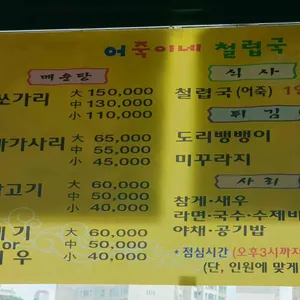 어죽이네 철렵국
매운탕
쏘가리 大 150,000
中 130,000
小 110,000
빠가사리 大 65,000
中 55,000
小 45,000
大 60,000
中 50,000
小 40,000
大 60,000
or 中 50,000
小 40,000
식사
철렵국(어죽)
튀김
도리뱅뱅이
미꾸라지
사리
참게·새우
라면·국수·수제비
야채·공기밥
*점심시간 (오후3시까지
(단, 인원에 맞게